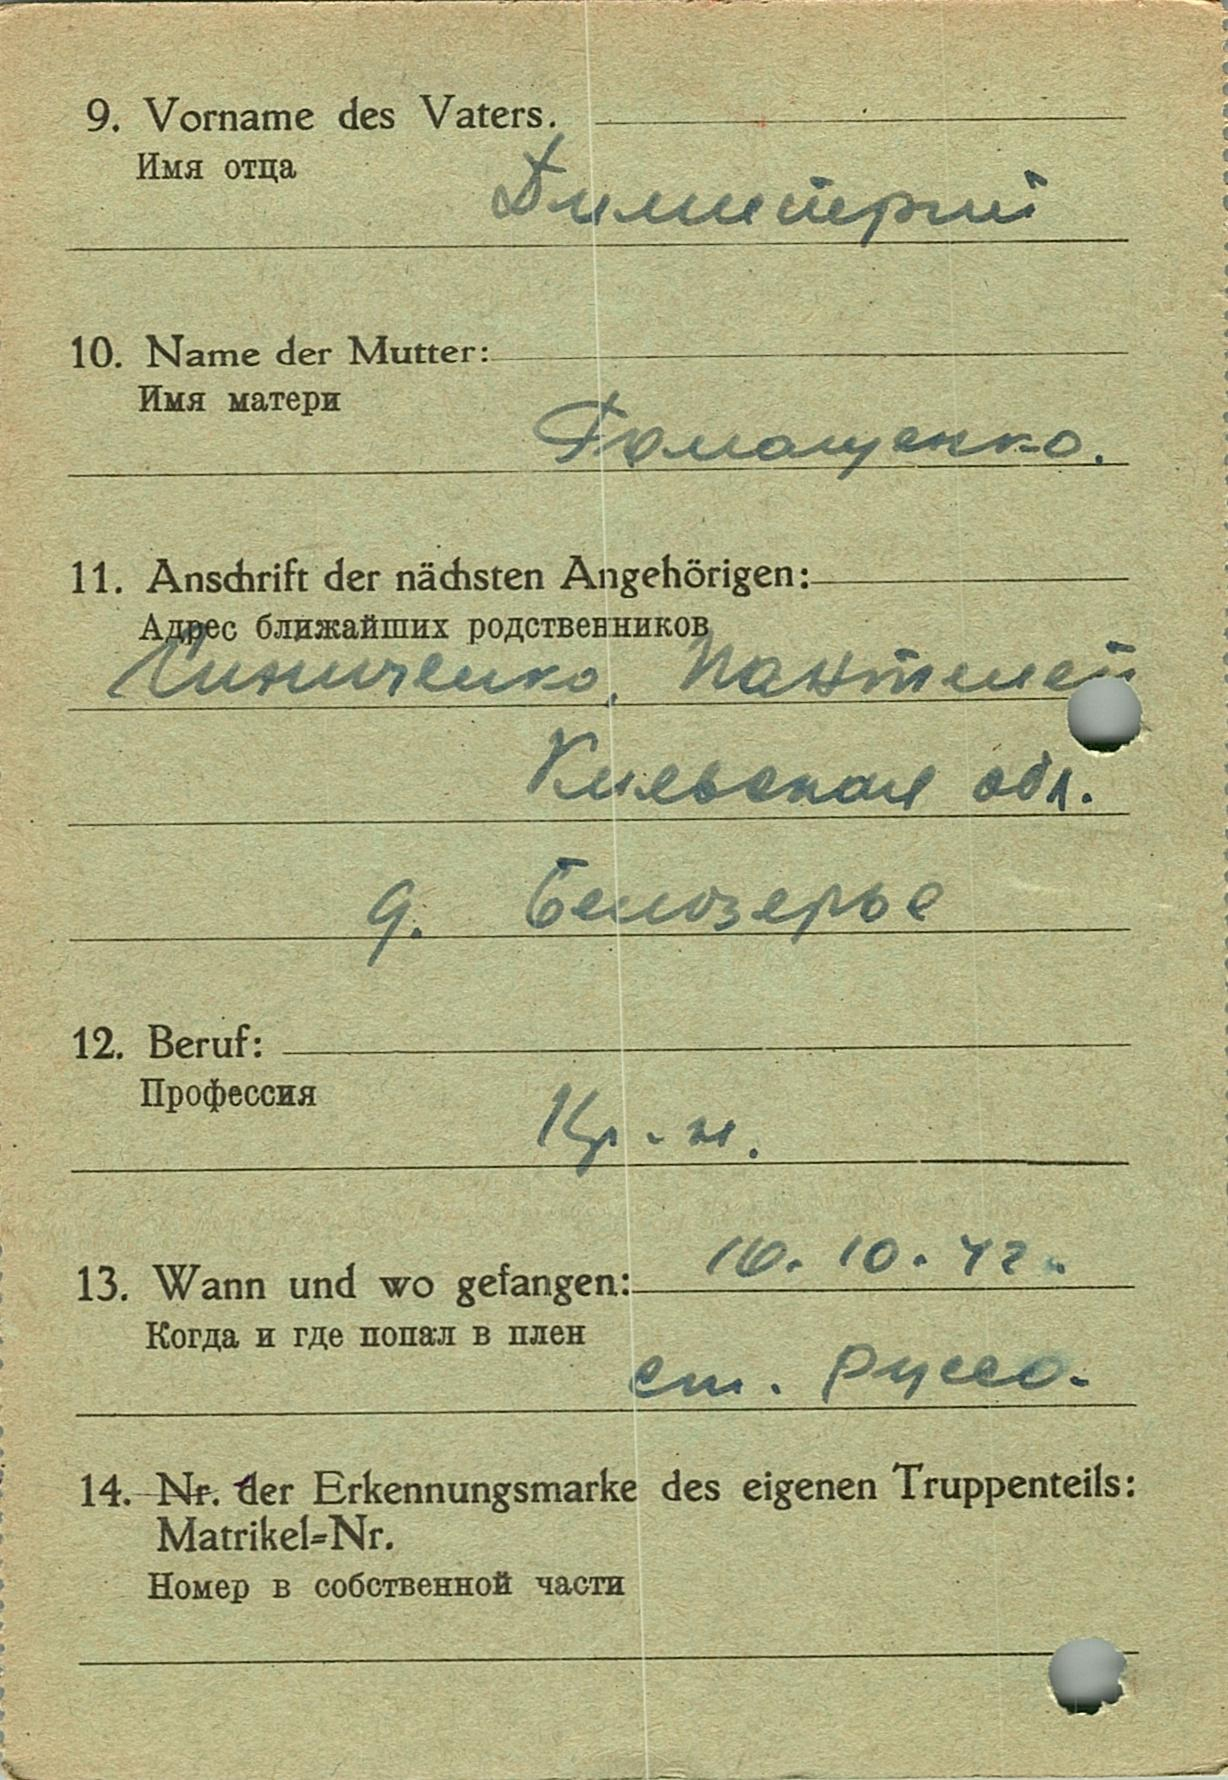 9. Vorname des Vaters.
Имя отца
Димитерий
10. Name der Mutter:
Имя матери
Ромащенко.
11. Anschrift der nächsten Angehörigen:
Адрес ближайших родственников
Синиченко, Пантелей
Киевская обл.
д. Белозерье
12. Beruf:
Профессия
Кр-н.
13. Wann und wo gefangen: 10.42.
Когда и где попал в плен
ст. Руссо.
14. Nr. der Erkennungsmarke des eigenen Truppenteils:
Matrikel=Nr.
Номер в собственной части